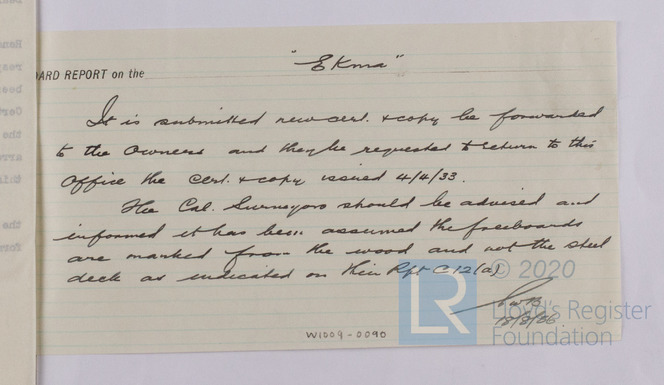 "Ekma"
ARD REPORT on the
It is submitted new cert. & copy be forwarded
to the Owners and they be requested to return to this
Office the Cert. & copy issued 4/4/33.
The Cal. Surveyors should be advised and
informed it has been assumed the freeboards
are marked from the wood and not the steel
deck as indicated on their Rpt C12(a)
W1009-0090
LR
© 2020
Lloyd's Register
Foundation